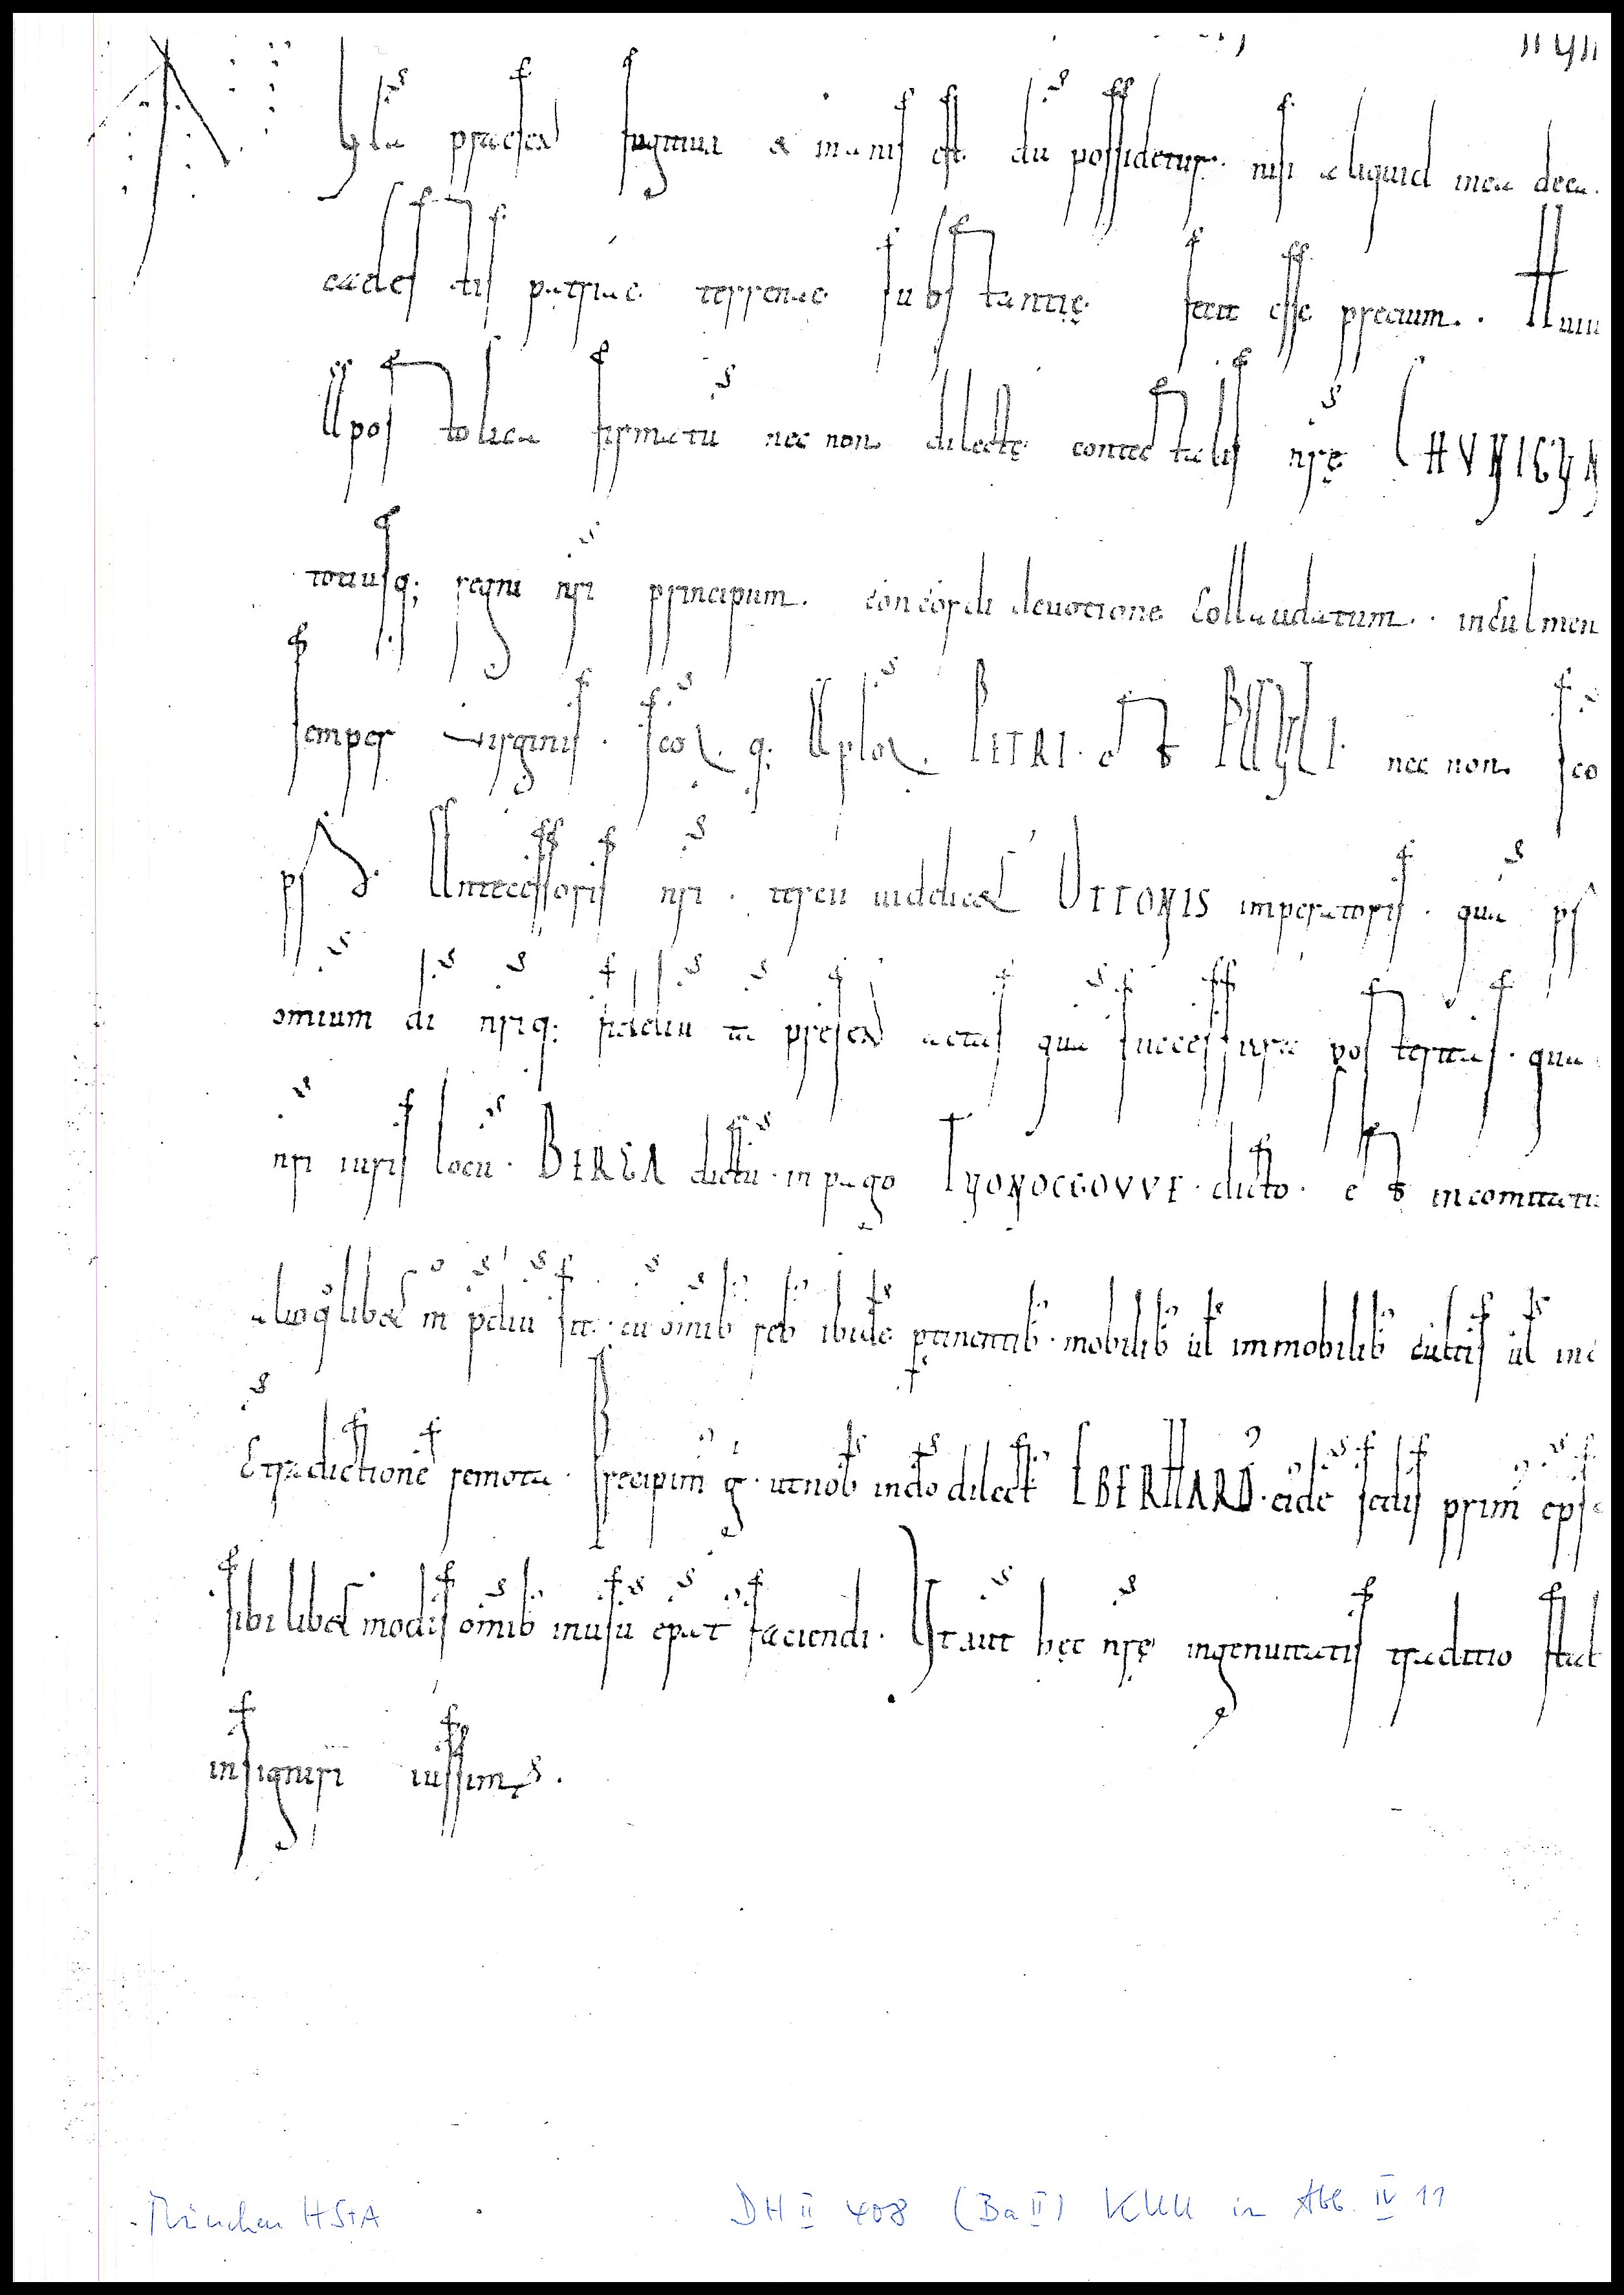 Gła praesens fugitiua & inanis est. dū possidetur. nisi aliquid inea dece.
caelestis patriae terrenae substantię fecit esse precium. Huiu
Apostolica firmatū necnon dilectę contectalis nrę CHVNIGVN
totiusq; regni nri principum. concordi deuotione collaudatum. inculmen
semper virginis. scoꝝ q; Aploꝝ. PETRI. et PAVLI. necnon sco
ps Antecessoris nri. tercii uidelicet OTTONIS imperatoris. quā ps
omium di nriq; fideliū tā presens aetas quā successura posteritas. qua
nri iuris locū. BERGA dictū. in pago TNONOCGOVVE. dicto. et incomitatu
alioq̊libet in peliū sit. cū omib reb ibidē ptinentib. mobilib ul immobilib cultis ul inc
Ctradictione remota. Precipim g. utnob indo dilect EBERHARD. eidē sedis prim eps
sibi libet modis omib inusū epat faciendi. Et aut hęc nrę ingenuitatis traditio stab
insigniri iussim.
München HStA DH II 408 (Ba II) KUU in Abb. IV 11